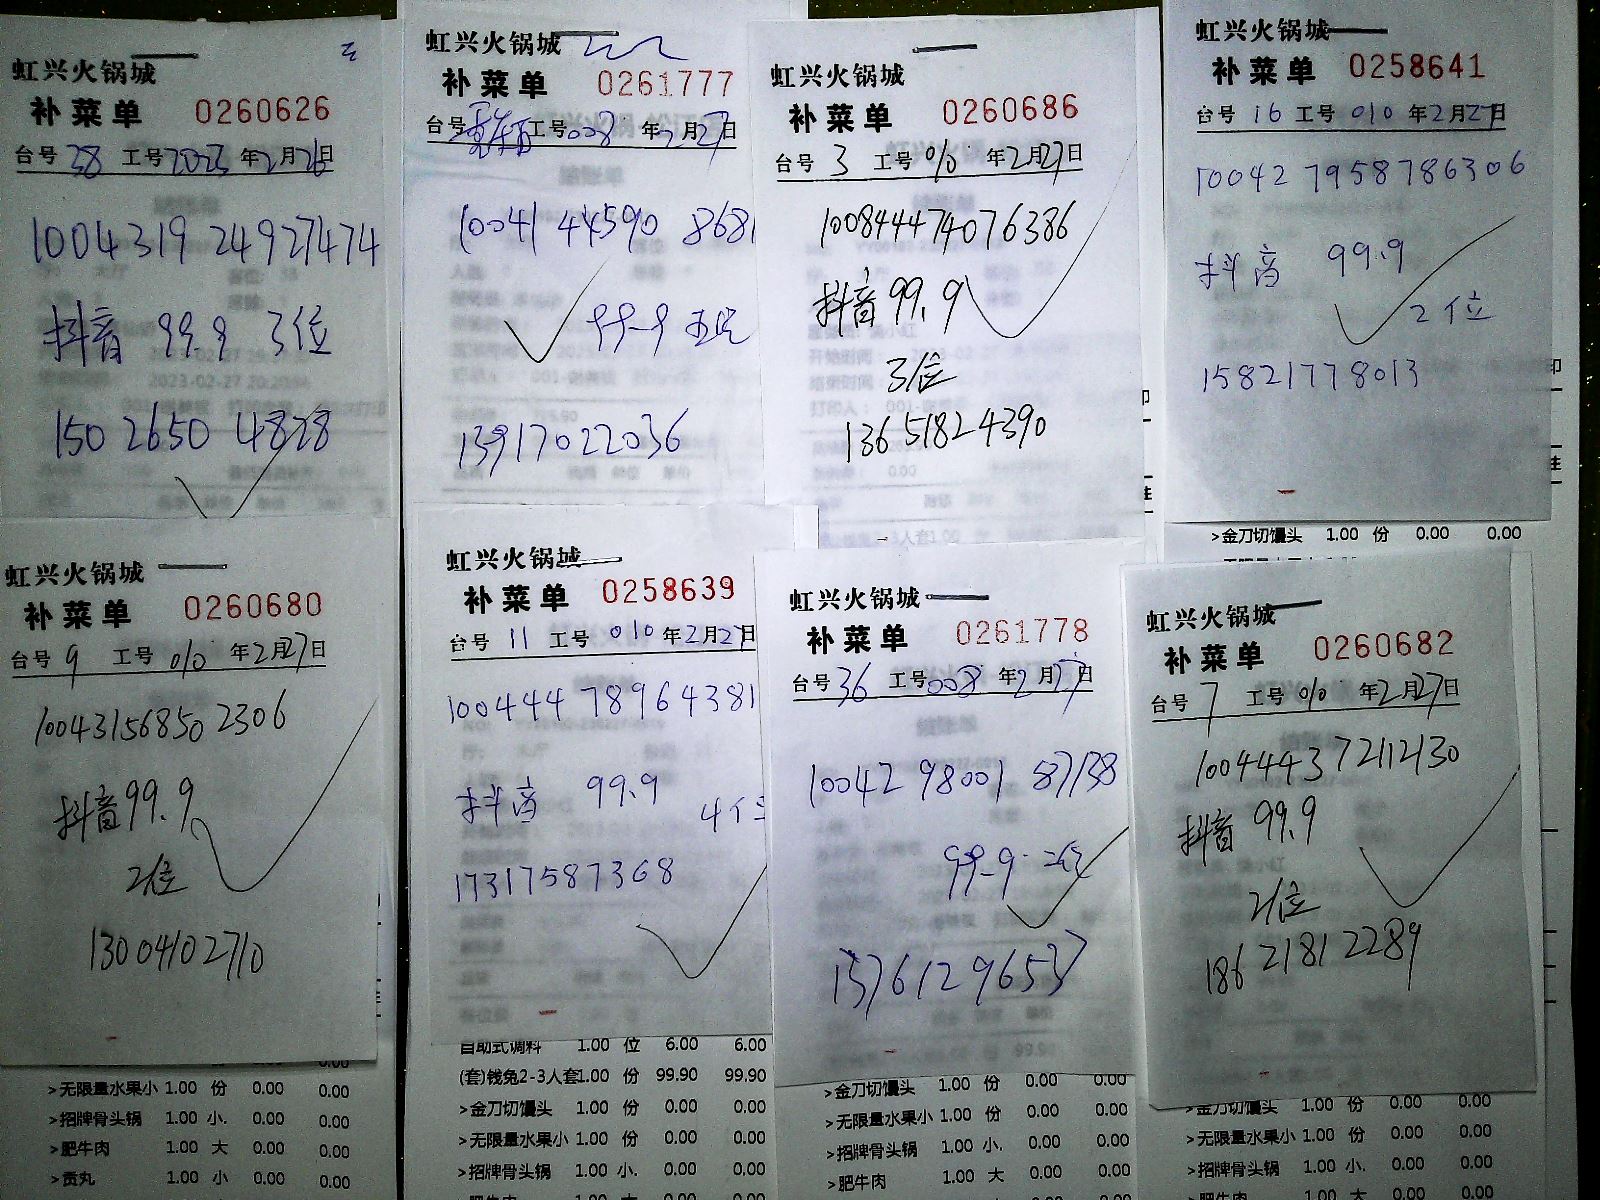 虹兴火锅城
补菜单 0260626
台号 38 工号 2023 年 2 月 26 日
1004319 24927474
抖音 99.9 3位
150 2650 4828
虹兴火锅城
补菜单 0261777
台号 工号 008 年 2 月 27 日
10041 44590 8681
99-9
13917022036
虹兴火锅城
补菜单 0260686
台号 3 工号 010 年 2 月 27 日
100844474076386
抖音 99.9
3位
13651824390
虹兴火锅城
补菜单 0258641
台号 16 工号 010 年 2 月 27 日
10042 7958786306
抖音 99.9
2位
15821778013
>金刀切馒头 1.00 份 0.00 0.00
虹兴火锅城
补菜单 0260680
台号 9 工号 010 年 2 月 27 日
10043156850 2306
抖音 99.9
2位
13004102710
0.00
>无限量水果小 1.00 份 0.00 0.00
>招牌骨头锅 1.00 小. 0.00 0.00
>肥牛肉 1.00 大 0.00 0.00
>贡丸 1.00 小 0.00 0.00
虹兴火锅城
补菜单 0258639
台号 11 工号 010 年 2 月 27 日
100444 78964381
抖音 99.9
4位
17317587368
自助式调料 1.00 位 6.00 6.00
(套)钱兔2-3人套1.00 份 99.90 99.90
>金刀切馒头 1.00 份 0.00 0.00
>无限量水果小 1.00 份 0.00 0.00
>招牌骨头锅 1.00 小. 0.00 0.00
虹兴火锅城
补菜单 0261778
台号 36 工号 008 年 2 月 27 日
10042 98001 87138
99-9 二位
13761296537
>金刀切馒头 1.00 份 0.00 0.00
>无限量水果小 1.00 份 0.00 0.00
>招牌骨头锅 1.00 小. 0.00 0.00
>肥牛肉 1.00 大 0.00 0.00
虹兴火锅城
补菜单 0260682
台号 7 工号 010 年 2 月 27 日
1004443 72112130
抖音 99.9
2位
186 21812289
>金刀切馒头 1.00 份 0.00 0.00
>无限量水果小 1.00 份 0.00 0.00
>招牌骨头锅 1.00 小. 0.00 0.00
>肥牛肉 1.00 大 0.00 0.00